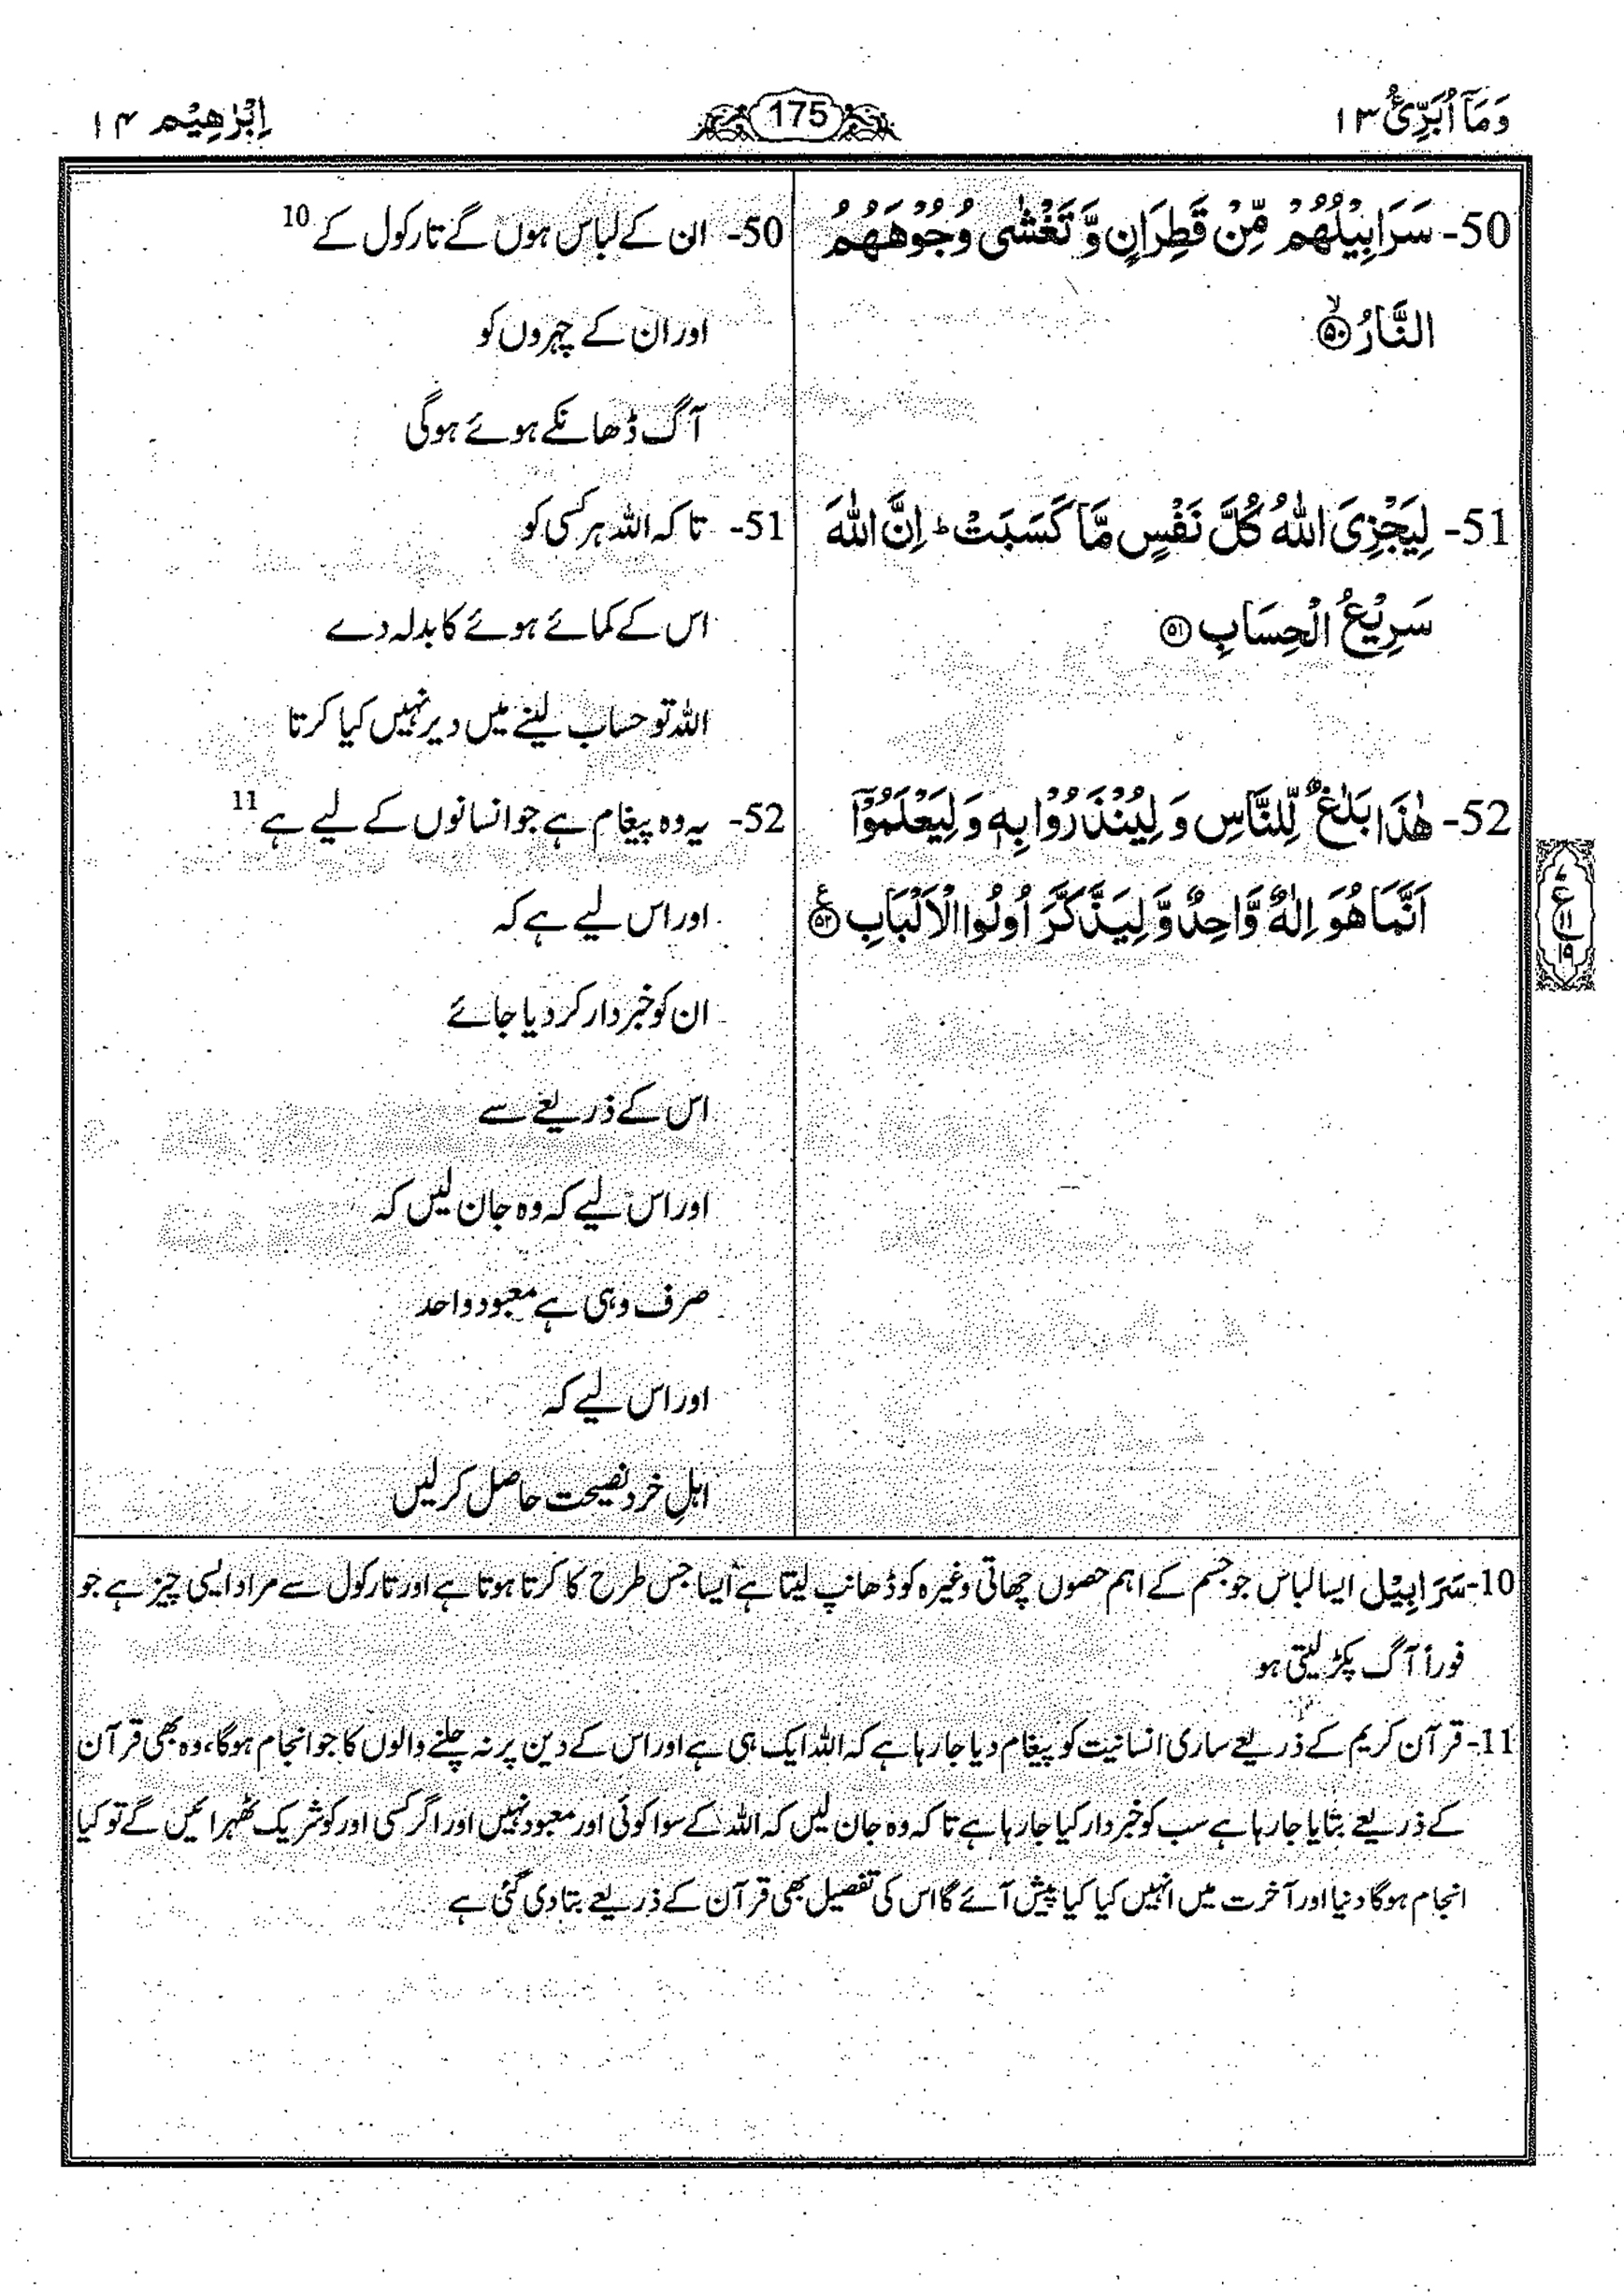 وَمَآ اُبَرِّئُ ۱۳
175
اِبْرٰهِيْم ۱۴
50- سَرَابِيْلُهُمْ مِّنْ قَطِرَانٍ وَّ تَغْشٰى وُجُوْهَهُمُ
النَّارُ ۙ﴿۵۰﴾
51- لِيَجْزِىَ اللّٰهُ كُلَّ نَفْسٍ مَّا كَسَبَتْ ؕ اِنَّ اللّٰهَ
سَرِيْعُ الْحِسَابِ ﴿۵۱﴾
52- هٰذَا بَلٰغٌ لِّلنَّاسِ وَ لِيُنْذَرُوْا بِهٖ وَ لِيَعْلَمُوْۤا
اَنَّمَا هُوَ اِلٰهٌ وَّاحِدٌ وَّ لِيَذَّكَّرَ اُولُوا الْاَلْبَابِ ﴿۵۲﴾ ع
50- ان کے لباس ہوں گے تارکول کے 10
اور ان کے چہروں کو
آگ ڈھانکے ہوئے ہوگی
51- تاکہ اللہ ہر کسی کو
اس کے کمائے ہوئے کا بدلہ دے
اللہ تو حساب لینے میں دیر نہیں کیا کرتا
52- یہ وہ پیغام ہے جو انسانوں کے لیے ہے 11
اور اس لیے ہے کہ
ان کو خبردار کر دیا جائے
اس کے ذریعے سے
اور اس لیے کہ وہ جان لیں کہ
صرف وہی ہے معبود واحد
اور اس لیے کہ
اہلِ خرد نصیحت حاصل کر لیں
۷
ع
۱۱
۱۹
10- سَرَابِيْل ایسا لباس جو جسم کے اہم حصوں چھاتی وغیرہ کو ڈھانپ لیتا ہے ایسا جس طرح کا کرتا ہوتا ہے اور تارکول سے مراد ایسی چیز ہے جو
فوراً آگ پکڑ لیتی ہو
11- قرآن کریم کے ذریعے ساری انسانیت کو پیغام دیا جا رہا ہے کہ اللہ ایک ہی ہے اور اس کے دین پر نہ چلنے والوں کا جو انجام ہوگا، وہ بھی قرآن
کے ذریعے بتایا جا رہا ہے سب کو خبردار کیا جا رہا ہے تاکہ وہ جان لیں کہ اللہ کے سوا کوئی اور معبود نہیں اور اگر کسی اور کو شریک ٹھہرائیں گے تو کیا
انجام ہوگا دنیا اور آخرت میں انہیں کیا کیا پیش آئے گا اس کی تفصیل بھی قرآن کے ذریعے بتا دی گئی ہے